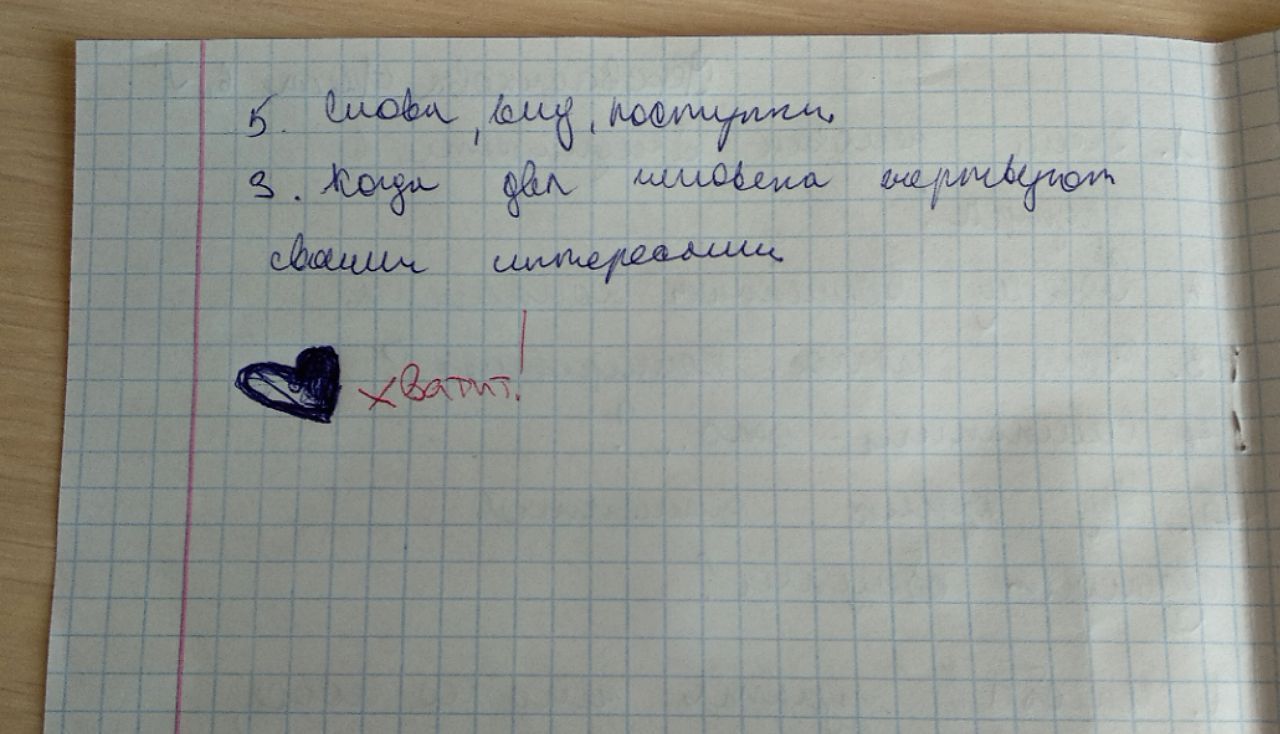 5. Слова, вид, поступки
3. Когда два человека жертвуют
своими интересами
хватит!